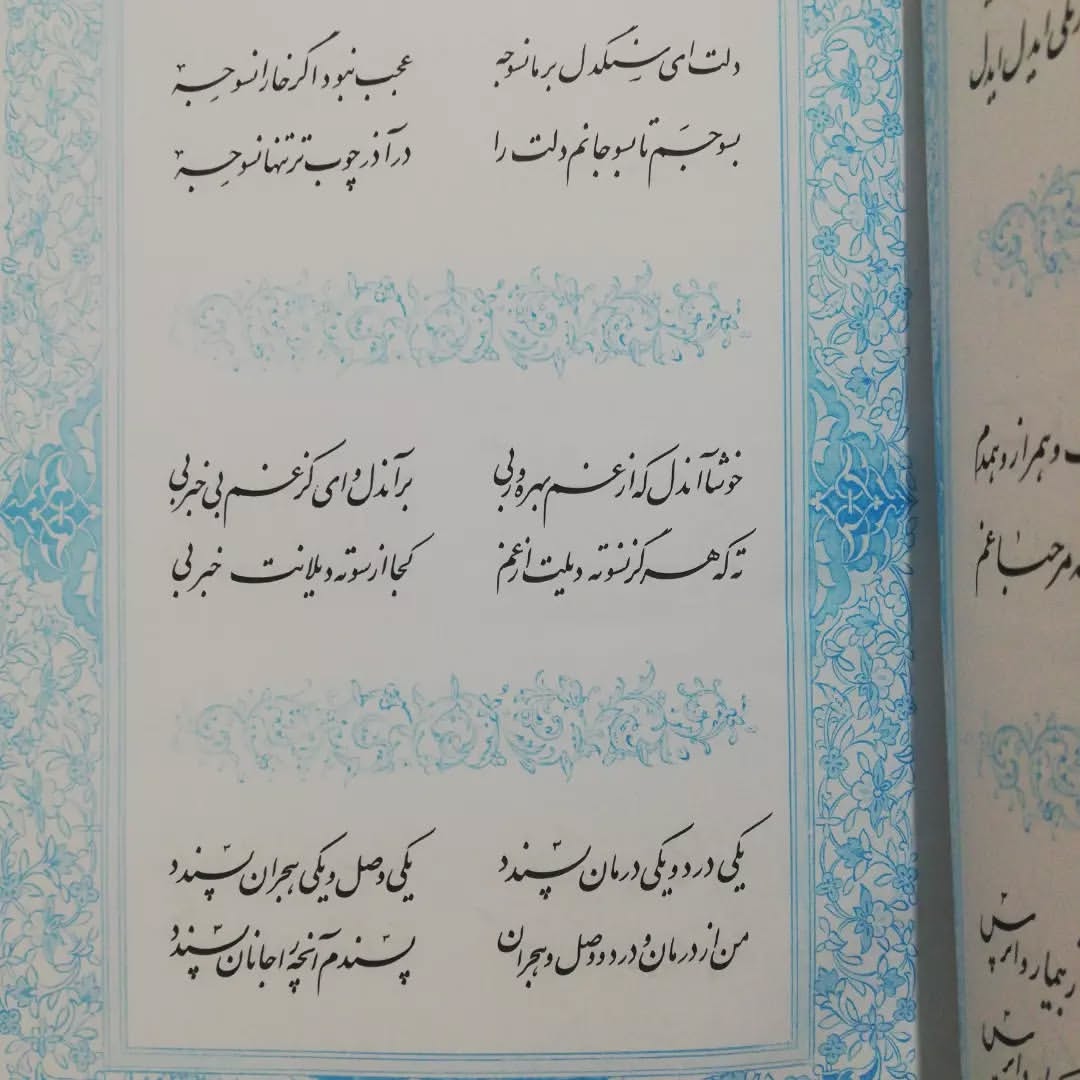 دلت ای سنگدل بر ما نسوجه عجب نبود اگر خارا نسوجه
بسوجم تا بسوجانم دلت را در آذر چوب تر تنها نسوجه
خوشا آندل که از غم بهره ور بی بر آندل وای کز غم بی خبر بی
ته که هرگز نسوته دیلت از غم کجا از سوته دیلانت خبر بی
یکی درد و یکی درمان پسندد یکی وصل و یکی هجران پسندد
من از درمان و درد و وصل و هجران پسندم آنچه را جانان پسندد
ایدل ایدل
و همراز و همدم
مرحبا غم